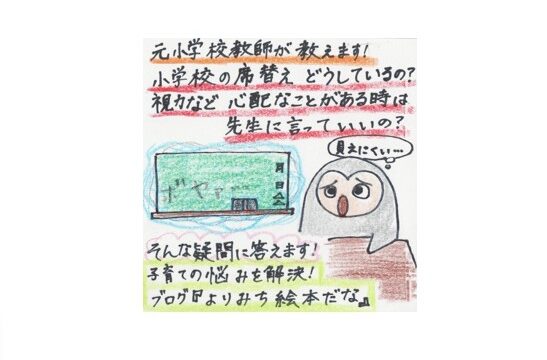 元小学校教師が教えます!
小学校の席替えどうしているの?
視力など心配なことがある時は
先生に言っていいの?
見えにくい…
ボヤァ…
月
日
そんな疑問に答えます!
子育ての悩みを解決!
ブログ『よりみち絵本だな』